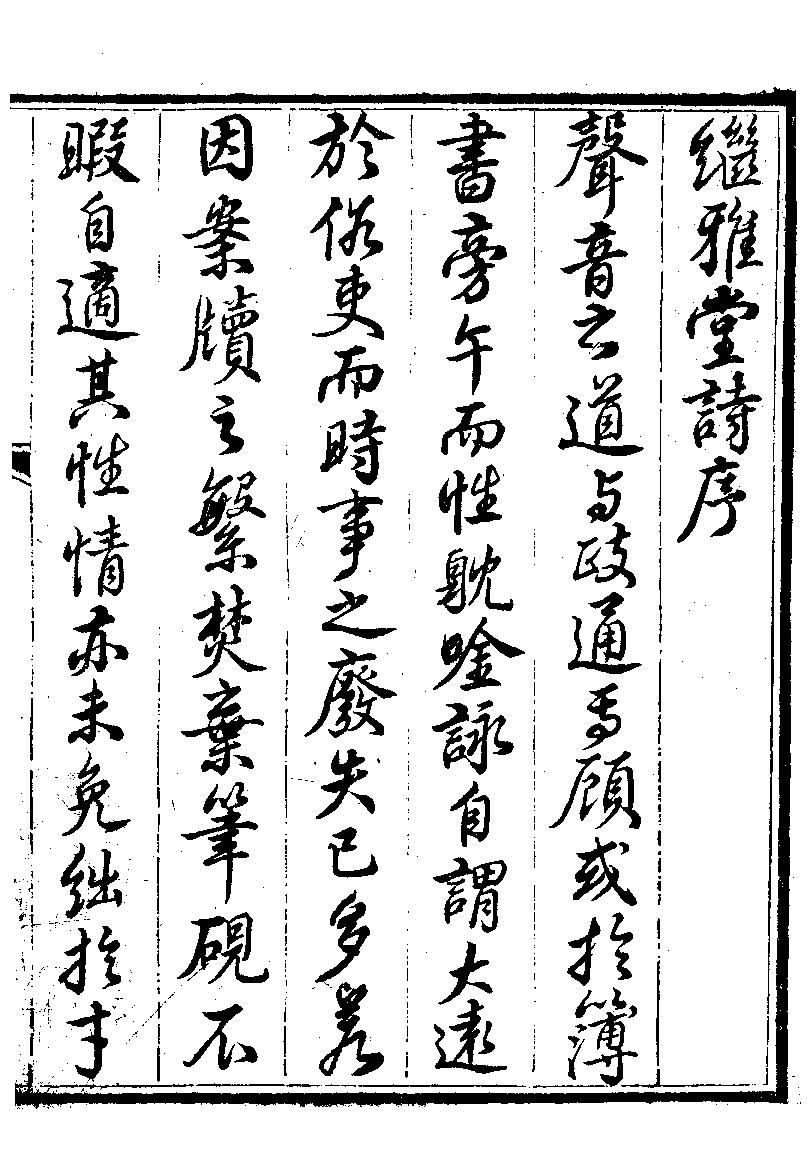 繼雅堂詩序
聲音之道与政通焉顧或於簿
書旁午而性躭唫詠自謂大遠
於俗吏而時事之廢失已多若
因案牘之繁焚棄筆硯不
暇自適其性情亦未免絀於才